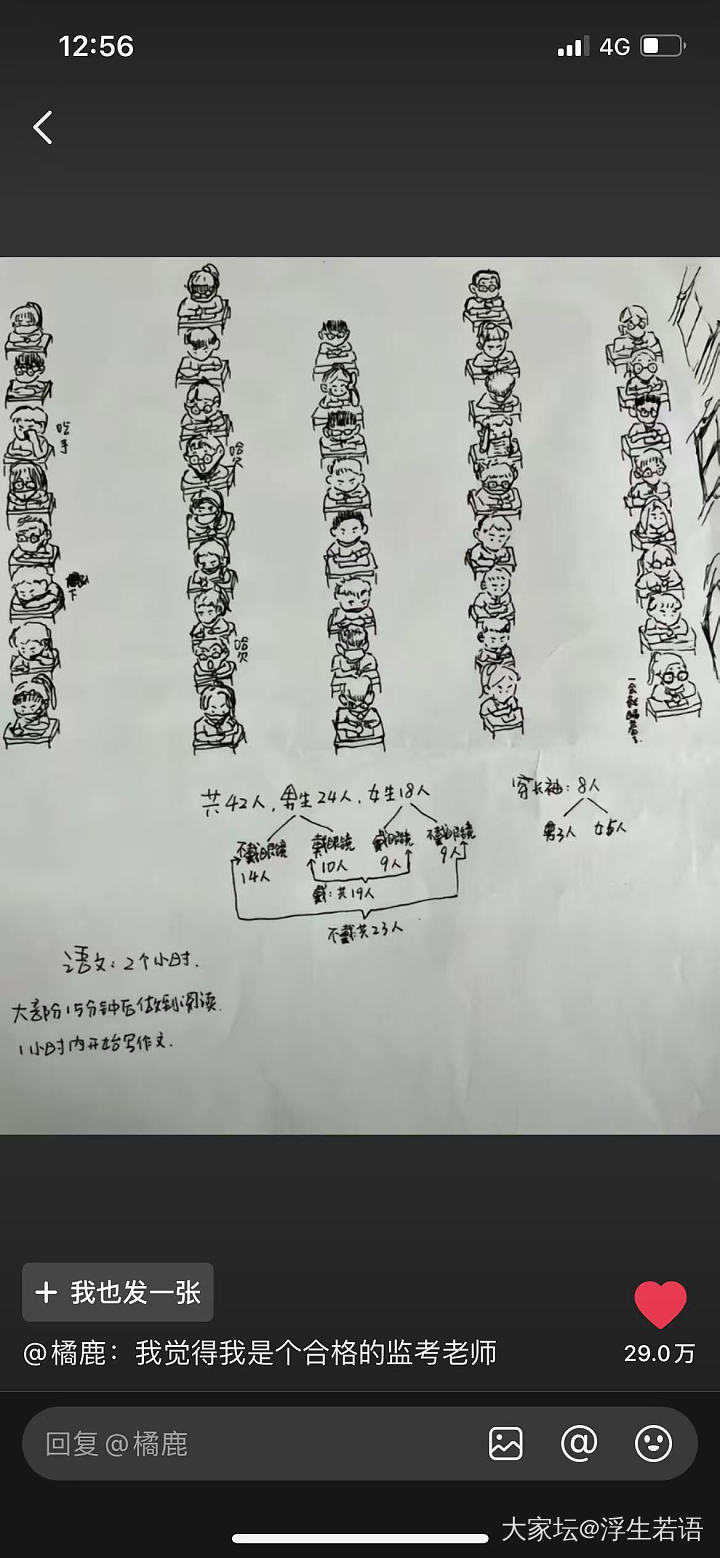 12:56
4G
哈欠
下
哈欠
共42人，男生24人，女生18人
穿长袖：8人
不戴眼镜
戴眼镜
戴眼镜
不戴眼镜
男3人 女5人
14人
10人
9人
9人
戴：共19人
不戴：共23人
语文：2个小时.
大部分15分钟后做到阅读.
1小时内开始写作文.
我也发一张
@橘鹿：我觉得我是个合格的监考老师
29.0万
回复@橘鹿
大家坛@浮生若语